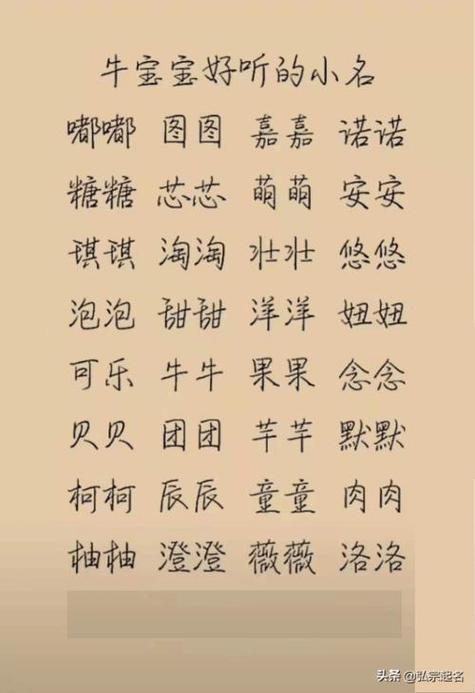 牛宝宝好听的小名
嘟嘟 图图 嘉嘉 诺诺
糖糖 芯芯 萌萌 安安
琪琪 淘淘 壮壮 悠悠
泡泡 甜甜 洋洋 妞妞
可乐 牛牛 果果 念念
贝贝 团团 芊芊 默默
柯柯 辰辰 童童 肉肉
柚柚 澄澄 薇薇 洛洛
头条 @弘宗起名